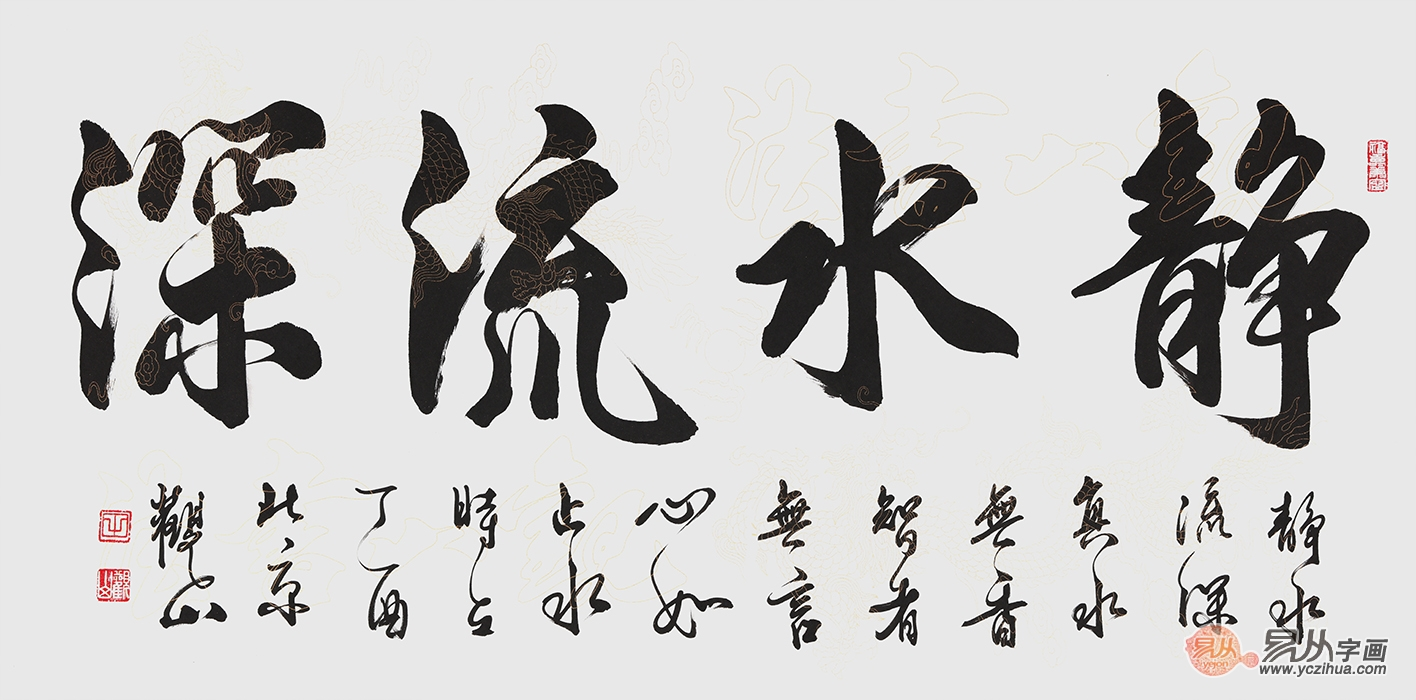 静水流深
静水
流深
真水
無香
智者
無言
心如
止水
時在
丁酉
北京
觀山
易从
易从字画
www.yczihua.com